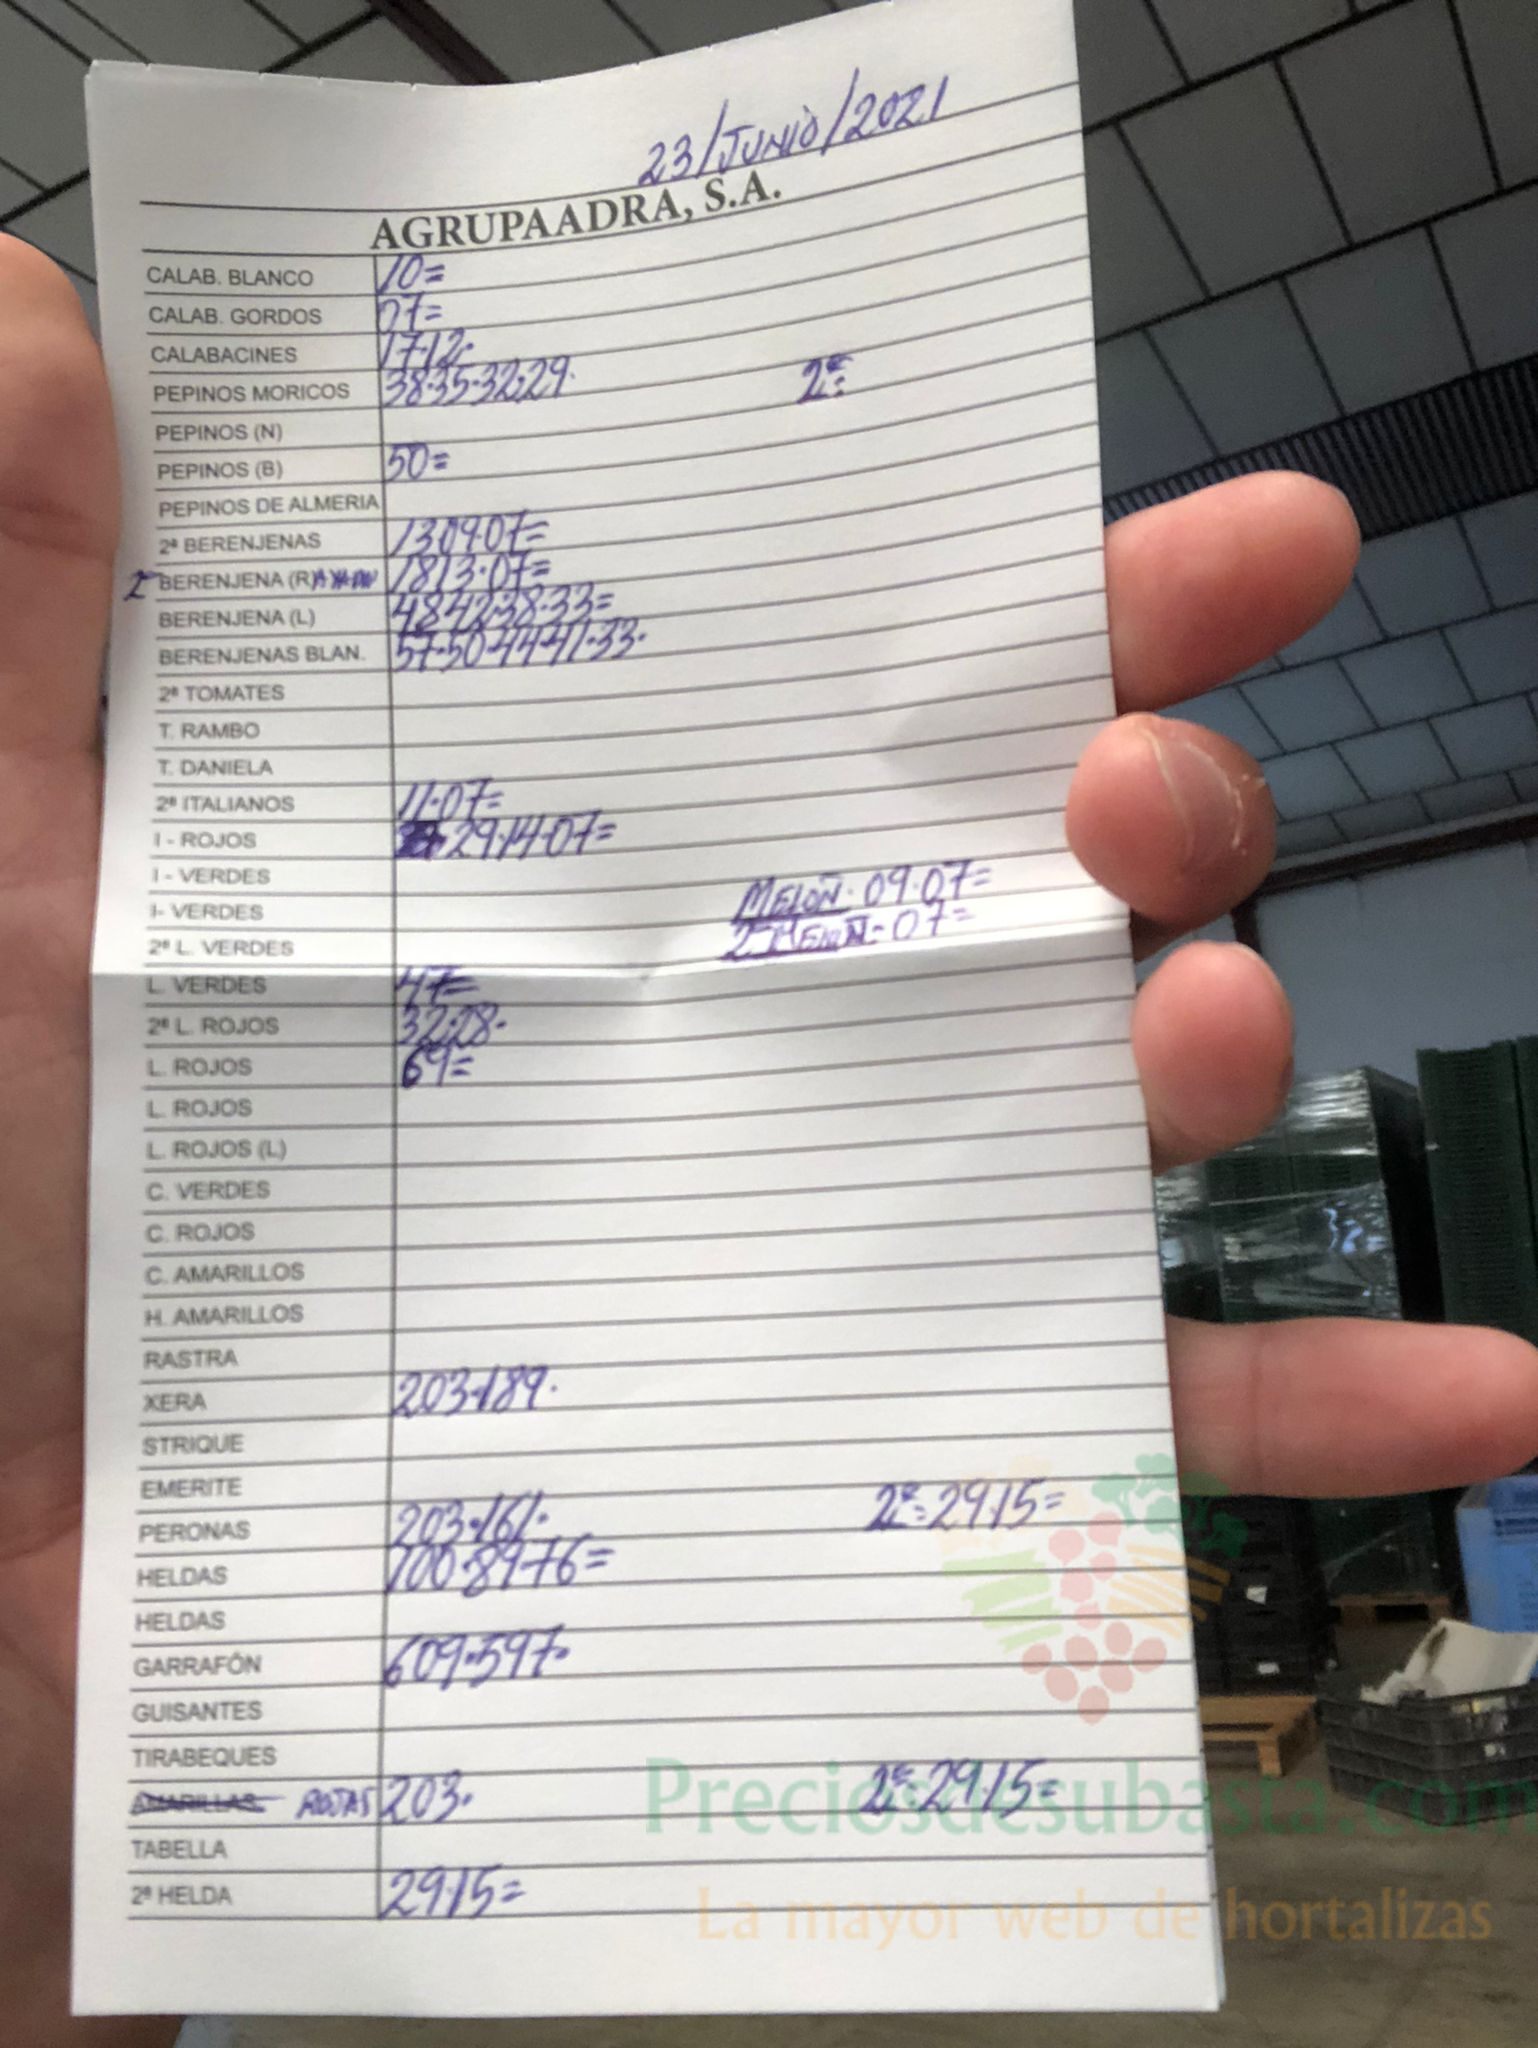 23/JUNIO/2021
AGRUPAADRA, S.A.
CALAB. BLANCO 10=
CALAB. GORDOS 07=
CALABACINES 17·12·
PEPINOS MORICOS 38·35·32·29· 2ª:
PEPINOS (N)
PEPINOS (B) 50=
PEPINOS DE ALMERIA
2ª BERENJENAS 13·09·07=
2ª BERENJENA (R) 18·13·07=
BERENJENA (L) 48·42·38·33=
BERENJENAS BLAN. 57·50·44·41·33·
2ª TOMATES
T. RAMBO
T. DANIELA
2ª ITALIANOS 11·07=
I - ROJOS 29·14·07=
I - VERDES
MELOÑ· 09·07=
I- VERDES
2ª MELOÑ· 07=
2ª L. VERDES
L. VERDES 47=
2ª L. ROJOS 32·28·
L. ROJOS 69=
L. ROJOS
L. ROJOS (L)
C. VERDES
C. ROJOS
C. AMARILLOS
H. AMARILLOS
RASTRA
XERA 203·189·
STRIQUE
EMERITE
PERONAS 203·161· 2ª: 29·15=
HELDAS 100·89·76=
HELDAS
GARRAFÓN 609·597·
GUISANTES
TIRABEQUES
AMARILLAS ROJAS 203· 2ª· 29·15=
Preciosdesubasta.com
TABELLA
2ª HELDA 29·15=
La mayor web de hortalizas